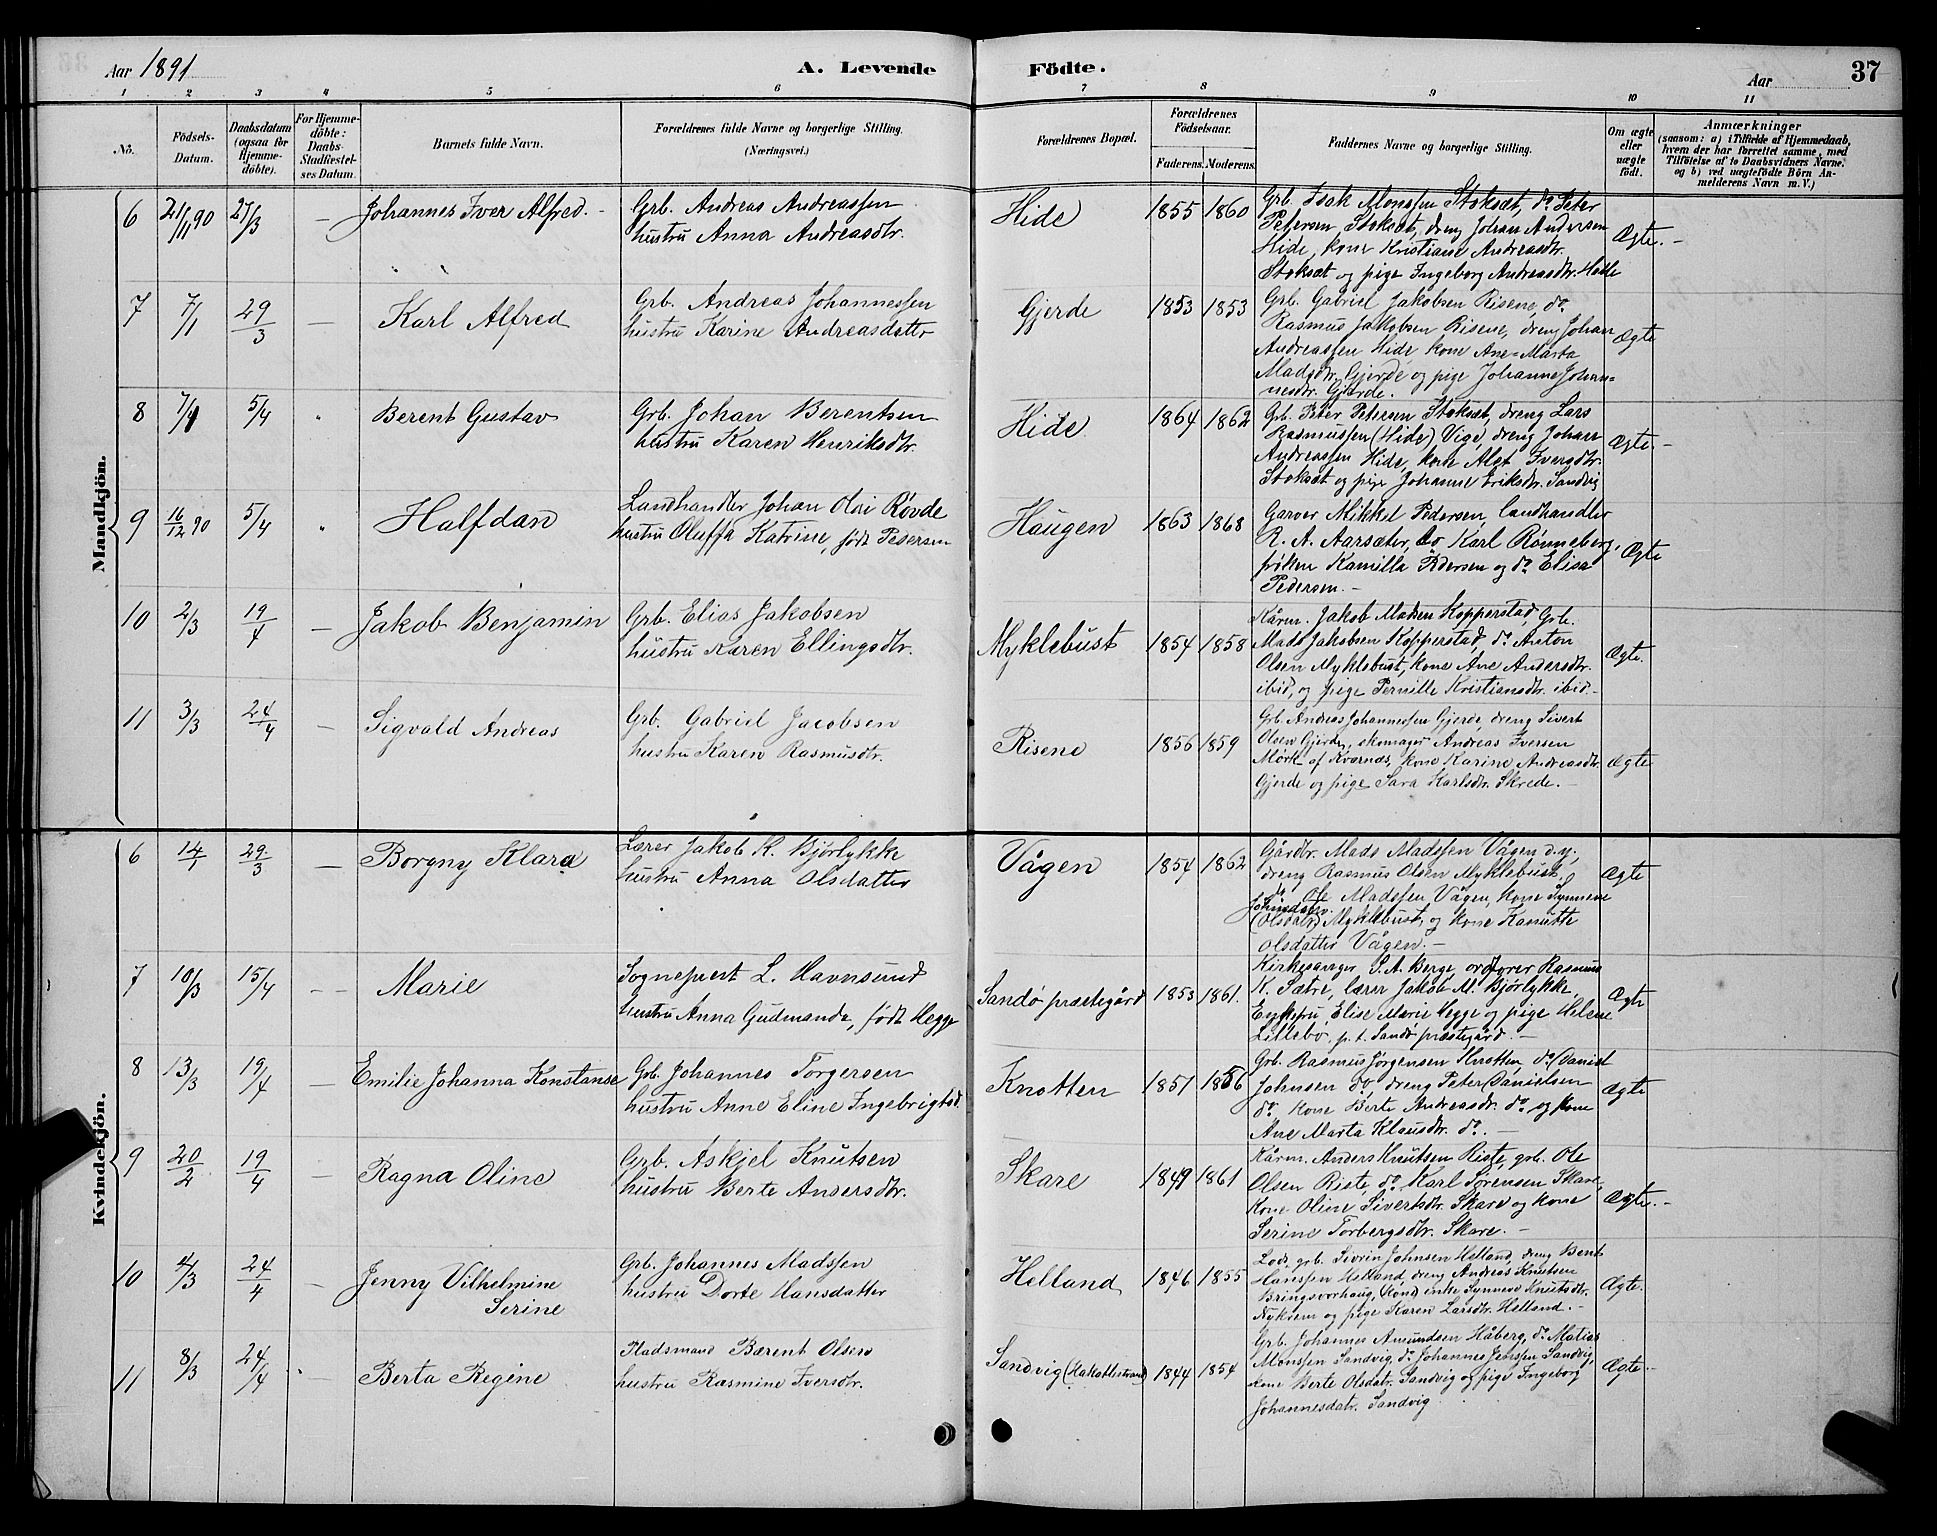 Aar 1891
A. Levende
Födte.
Aar
37
1 2 3 4 5 6 7 8 9 10 11
No.
Födsels-
Datum.
Daabsdatum
(ogsaa for
Hjemme-
döbte).
For Hjemme-
döbte:
Daabs-
Stadfæstel-
ses Datum.
Barnets fulde Navn.
Forældrenes fulde Navne og borgerlige Stilling.
(Næringsvei.)
Forældrenes Bopæl.
Forældrenes
Födselsaar.
Faderens. Moderens.
Faddernes Navne og borgerlige Stilling.
Om ægte
eller
uægte
födt.
Anmærkninger
(saasom: a) i Tilfælde af Hjemmedaab,
hvem der har forrettet samme, med
Tilföielse af to Daabsvidners Navne,
og b) ved uægtefödte Börn An-
melderens Navn m. V.)
Mandkjön.
6 21/11 90 27/3 — Johannes Iver Alfred.
Grb. Andreas Andreassen
hustru Anna Andreasdtr.
Hide 1855 1860
Grb. Isak Monssen Stoksæt, do Peter
Petersen Stoksæt, dreng Johan Andersen
Hide, kone Kristiane Andreasdtr.
Stoksæt og pige Ingeborg Andreasdtr. Holle
Ægte. —
7 7/1 29/3 — Karl Alfred
Grb. Andreas Johannessen
hustru Karine Andreasdatter
Gjerde 1853 1853
Grb. Gabriel Jakobsen Risene, do
Rasmus Jakobsen Risene, dreng Johan
Andreassen Hide, kone Ane-Marta
Madsdtr. Gjerde og pige Johanne Johan-
nesdtr. Gjerde.
Ægte
8 7/1 5/4 " Berent Gustav
Grb. Johan Berentsen
hustru Karen Henriksdtr.
Hide 1864 1862
Grb. Peter Petersen Stoksæt, dreng Lars
Rasmussen (Hide) Vige, dreng Johan
Andreassen Hide, kone Alet Iversdtr.
Stoksæt og pige Johanne Eriksdtr. Sandvig
Ægte. —
9 16/12 90 5/4 " Halfdan
Landhandler Johan Olai Røvde
hustru Oluffa Katrine, født Pedersen
Haugen 1863 1868
Garver Mikkel Pedersen, landhandler
R. A. Aarsæter, do Karl Rønneberg,
frøken Kamilla Pedersen og do Elisa
Pedersen. —
Ægte
10 2/3 19/4 — Jakob Benjamin
Grb. Elias Jakobsen
hustru Karen Ellingsdtr.
Myklebust 1854 1858
Kårm. Jakob Madsen Kopperstad, Grb.
Mads Jakobsen Kopperstad do Anton
Olsen Myklebust, kone Ane Andersdtr.
ibid, og pige Pernille Kristiansdtr. ibid. —
Ægte.
11 3/3 24/4 — Sigvald Andreas
Grb. Gabriel Jacobsen
hustru Karen Rasmusdtr.
Risene 1856 1859
Grb. Andreas Johannessen Gjerde, dreng Sivert
Olsen Gjerde, skomager Andreas Iversen
Mørk af Kvarnæs, kone Karine Andreasdtr.
Gjerde og pige Sara Karlsdtr. Skrede. —
Ægte
Kvindekjön.
6 14/1 29/3 — Borgny Klara
Lærer Jakob K. Bjørlykke
hustru Anna Olsdatter
Vågen 1854 1862
Gårdbr. Mads Madssen Vågen d.y.,
dreng Rasmus Olsen Myklebust,
do Ole Madssen Vågen, kone Synneve
Johnsdatr.
(Olsdatr) Myklebust, og kone Kanutte
Olsdatter Vågen. —
Ægte
7 10/3 15/4 — — Marie
Sogneprest L. Havnsund
hustru Anna Gudmanda, født Hegge
Sandø præstegård 1853 1861.
Kirkesanger S. A. Berge, ordfører Rasmus
K. Sætre, lærer Jakob M. Bjørlykke,
Enkefru Elise Marie Hegge og pige Helene
Lillebø, p. t. Sandø præstegård —
Ægte
8 13/3 19/4 — Emilie Johanna Konstanse
Grb. Johannes Torgersen
hustru Anne Eline Ingebrigtsd.
Knotten 1851 1856
Grb. Rasmus Jørgensen Knotten, do Daniel
Johnsen do, dreng Peter Danielsen
do, kone Berte Andreasdr. do og kone
Ane Marta Klausdtr. do. —
Ægte
9 20/2 19/4 — Ragna Oline
Grb. Askjel Knutsen
hustru Berte Andersdtr.
Skare 1849 1861
Kårm. Anders Knutsen Riste, grb. Ole
Olsen Riste, do Karl Sørensen Skare,
Kone Oline Sivertsdtr. Skare og kone
Serine Torbergsdtr. Skare. —
Ægte. —
10 4/3 24/4 — Jenny Vilhelmine
Serine
Grb. Johannes Madssen
hustru Dorte Hansdatter
Helland 1846 1855
Lods, grb. Sivrin Johnsen Helland, dreng Bent
Hanssen Helland, dreng Andreas Knutsen
Bringsvorhaug, (Kone) enke Synneve Knutsdtr.
Nykrem og pige Karen Larsdtr. Helland. —
Ægte.
11 8/3 24/4 Berta Regine
Pladsmand Bærent Olsen
hustru Rasmine Iversdtr.
Sandvig (Hakallestrand) 1844 1854
Grb. Johannes Amundsen Håberg, do Matias
Monssen Sandvig, do Johannes Jenssen Sandvig,
kone Berte Olsdatr. Sandvig og pige Ingeborg
Johannesdatr. Sandvig
Ægte. —